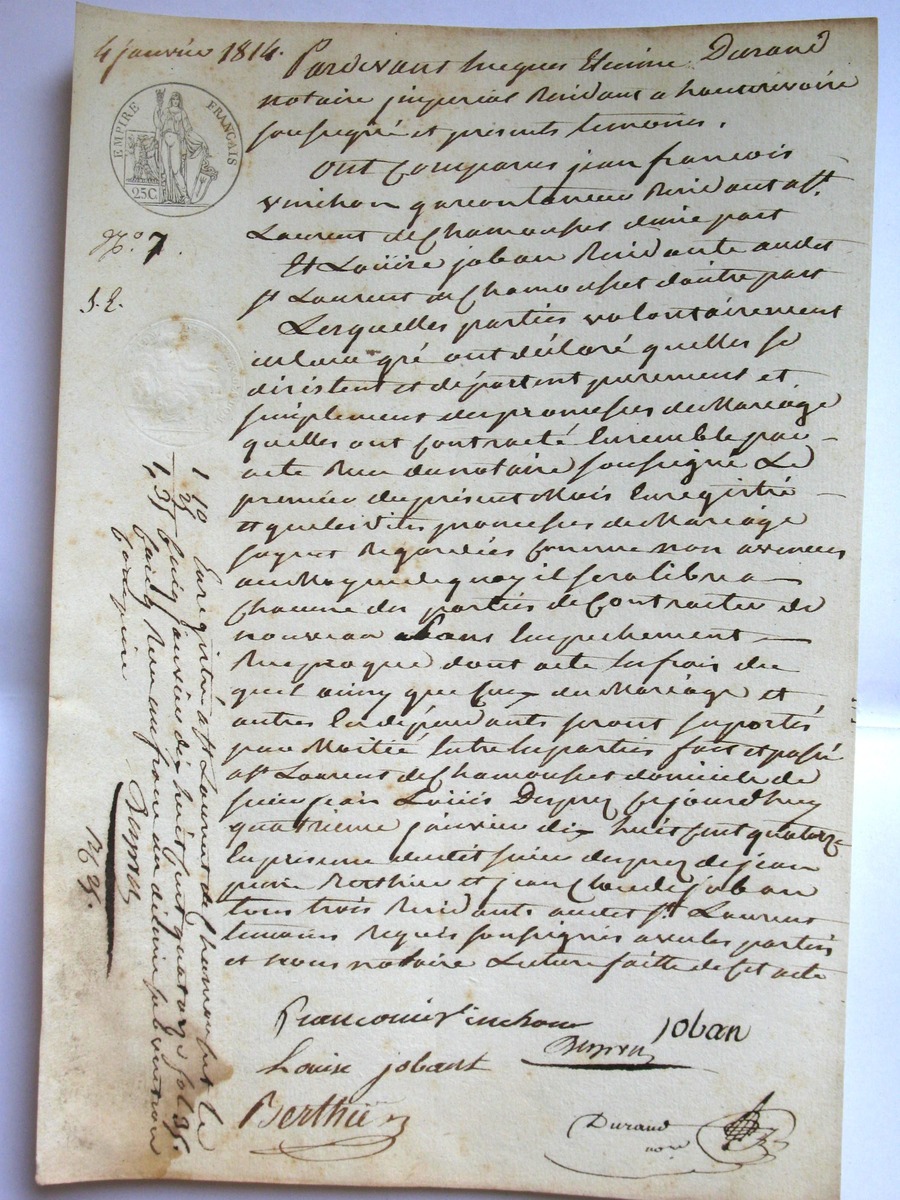 4 janvier 1814.
EMPIRE FRANÇAIS
25C
N.º 7.
Pardevant Etienne Durand
notaire imperial Residant a hauterivoire
soussigné et presents temoins.
Ont Comparus jean francois
vinchon garcon Residant a st.
Laurent de Chamousset d'une part
Et Loüise joban Residante audit
st Laurent de Chamousset d'autre part
Lesquelles parties volontairement
gré ont déclaré quelles se
désistent et départent purement et
simplement des promesses de Mariage
quelles ont Contracté Ensemble par
acte Reçu du notaire soussigné Le
premier du présent Mois Enregistré
et que les dites promesses de Mariage
soyent Regardées Comme non avenues
au Moyen de quoy il sera libre a
Chacune des parties de Contracter de
nouveau sans Empechement
Reciproque dont acte les frais du
quel ainsy que Ceux du Mariage et
autres En dépendants seront suportés
par Moitié Entre les parties fait et passé
a st Laurent de Chamousset domicile de
sieur jean Loüis Desprez Cejourdhuy
quatrieme janvier dix huit Cent quatorze
En présence dudit sieur desprez de jean
Berthier et jean Claude joban
tous trois Residants audit st. Laurent
temoins Requis soussignés avec les parties
et Nous notaire Lecture faitte de Cet acte
francois vinchon
joban
Louise jobant
Berthier
Durand
nore
Enregistré a st Laurent de Chamousset le
Cinq janvier dix huit Cent quatorze fol 35.
Reçu un franc dixieme subvention
Comprise